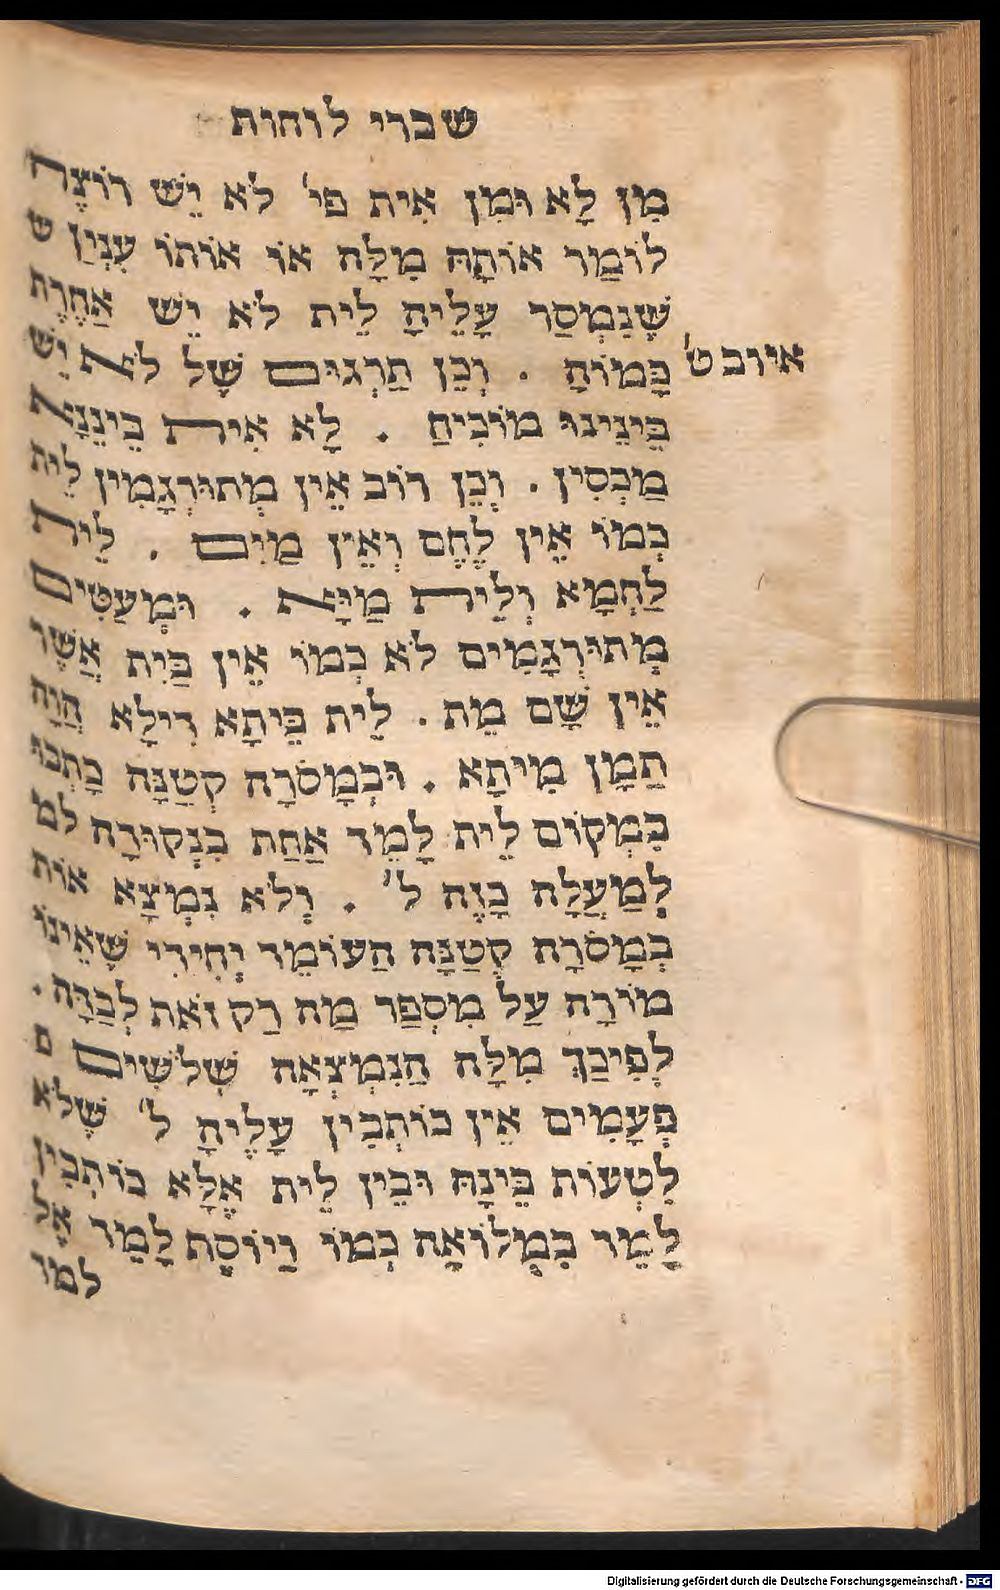 שברי לוחות
מִן לָא וּמִן אִית פי' לֹא יֵשׁ רוֹצֶה
לוֹמַר אוֹתָהּ מִלָּה אוֹ אוֹתוֹ עִנְיַן ש
שֶׁנִמְסַר עָלֶיהָ לֵית לֹא יֵשׁ אַחֶרֶת
איוב ט'
כָּמוֹהַ . וְכֵן תַּרְגּוּם שֶׁל לֹא יֵשׁ
בֵּינֵינוּ מוֹכִיחַ . לָא אִית בֵּינֵנָא
מַכְסִין . וְכֵן רוֹב אֵין מְתוּרְגָמִין לֵית
כְּמוֹ אֵין לֶחֶם וְאֵין מַיִם . לֵית
לַחְמָא וְלֵית מַיָּא . וּמְעַטִּים
מְתוּרְגָמִים לֹא כְּמוֹ אֵין בַּיִת אֲשֶׁר
אֵין שָׁם מֵת . לֵית בֵּיתָא דִילָא הֲוָה
תַמָּן מִיתָא . וּבְמָסֹרָה קְטַנָּה כָּתְבוּ
בִּמְקוֹם לֵית לָמֵד אַחַת בִּנְקוּדָה לם
לְמַעֲלָה כָּזֶה ל' . וְלֹא נִמְצָא אוֹת
בְּמָסֹרָה קְטַנָּה הַעוֹמֵד יְחִידִי שֶׁאֵינוֹ
מוֹרָה עַל מִסְפַּר מַה רַק זֹאת לְבַדָּהּ .
לְפִיכַךְ מִלָּה הַנִמְצְאָה שְׁלֹשִׁים ם
פְּעָמִים אֵין כּוֹתְבִין עָלֶיהָ ל' שֶׁלֹּא
לִטְעוֹת בֵּינָהּ וּבֵין לֵית אֶלָּא כּוֹתְבִין
לָמֶד בִּמְלוֹאָהּ כְּמוֹ וַיּוֹסֶף לָמֵד אֶל
למד
Digitalisierung gefördert durch die Deutsche Forschungsgemeinschaft - DFG